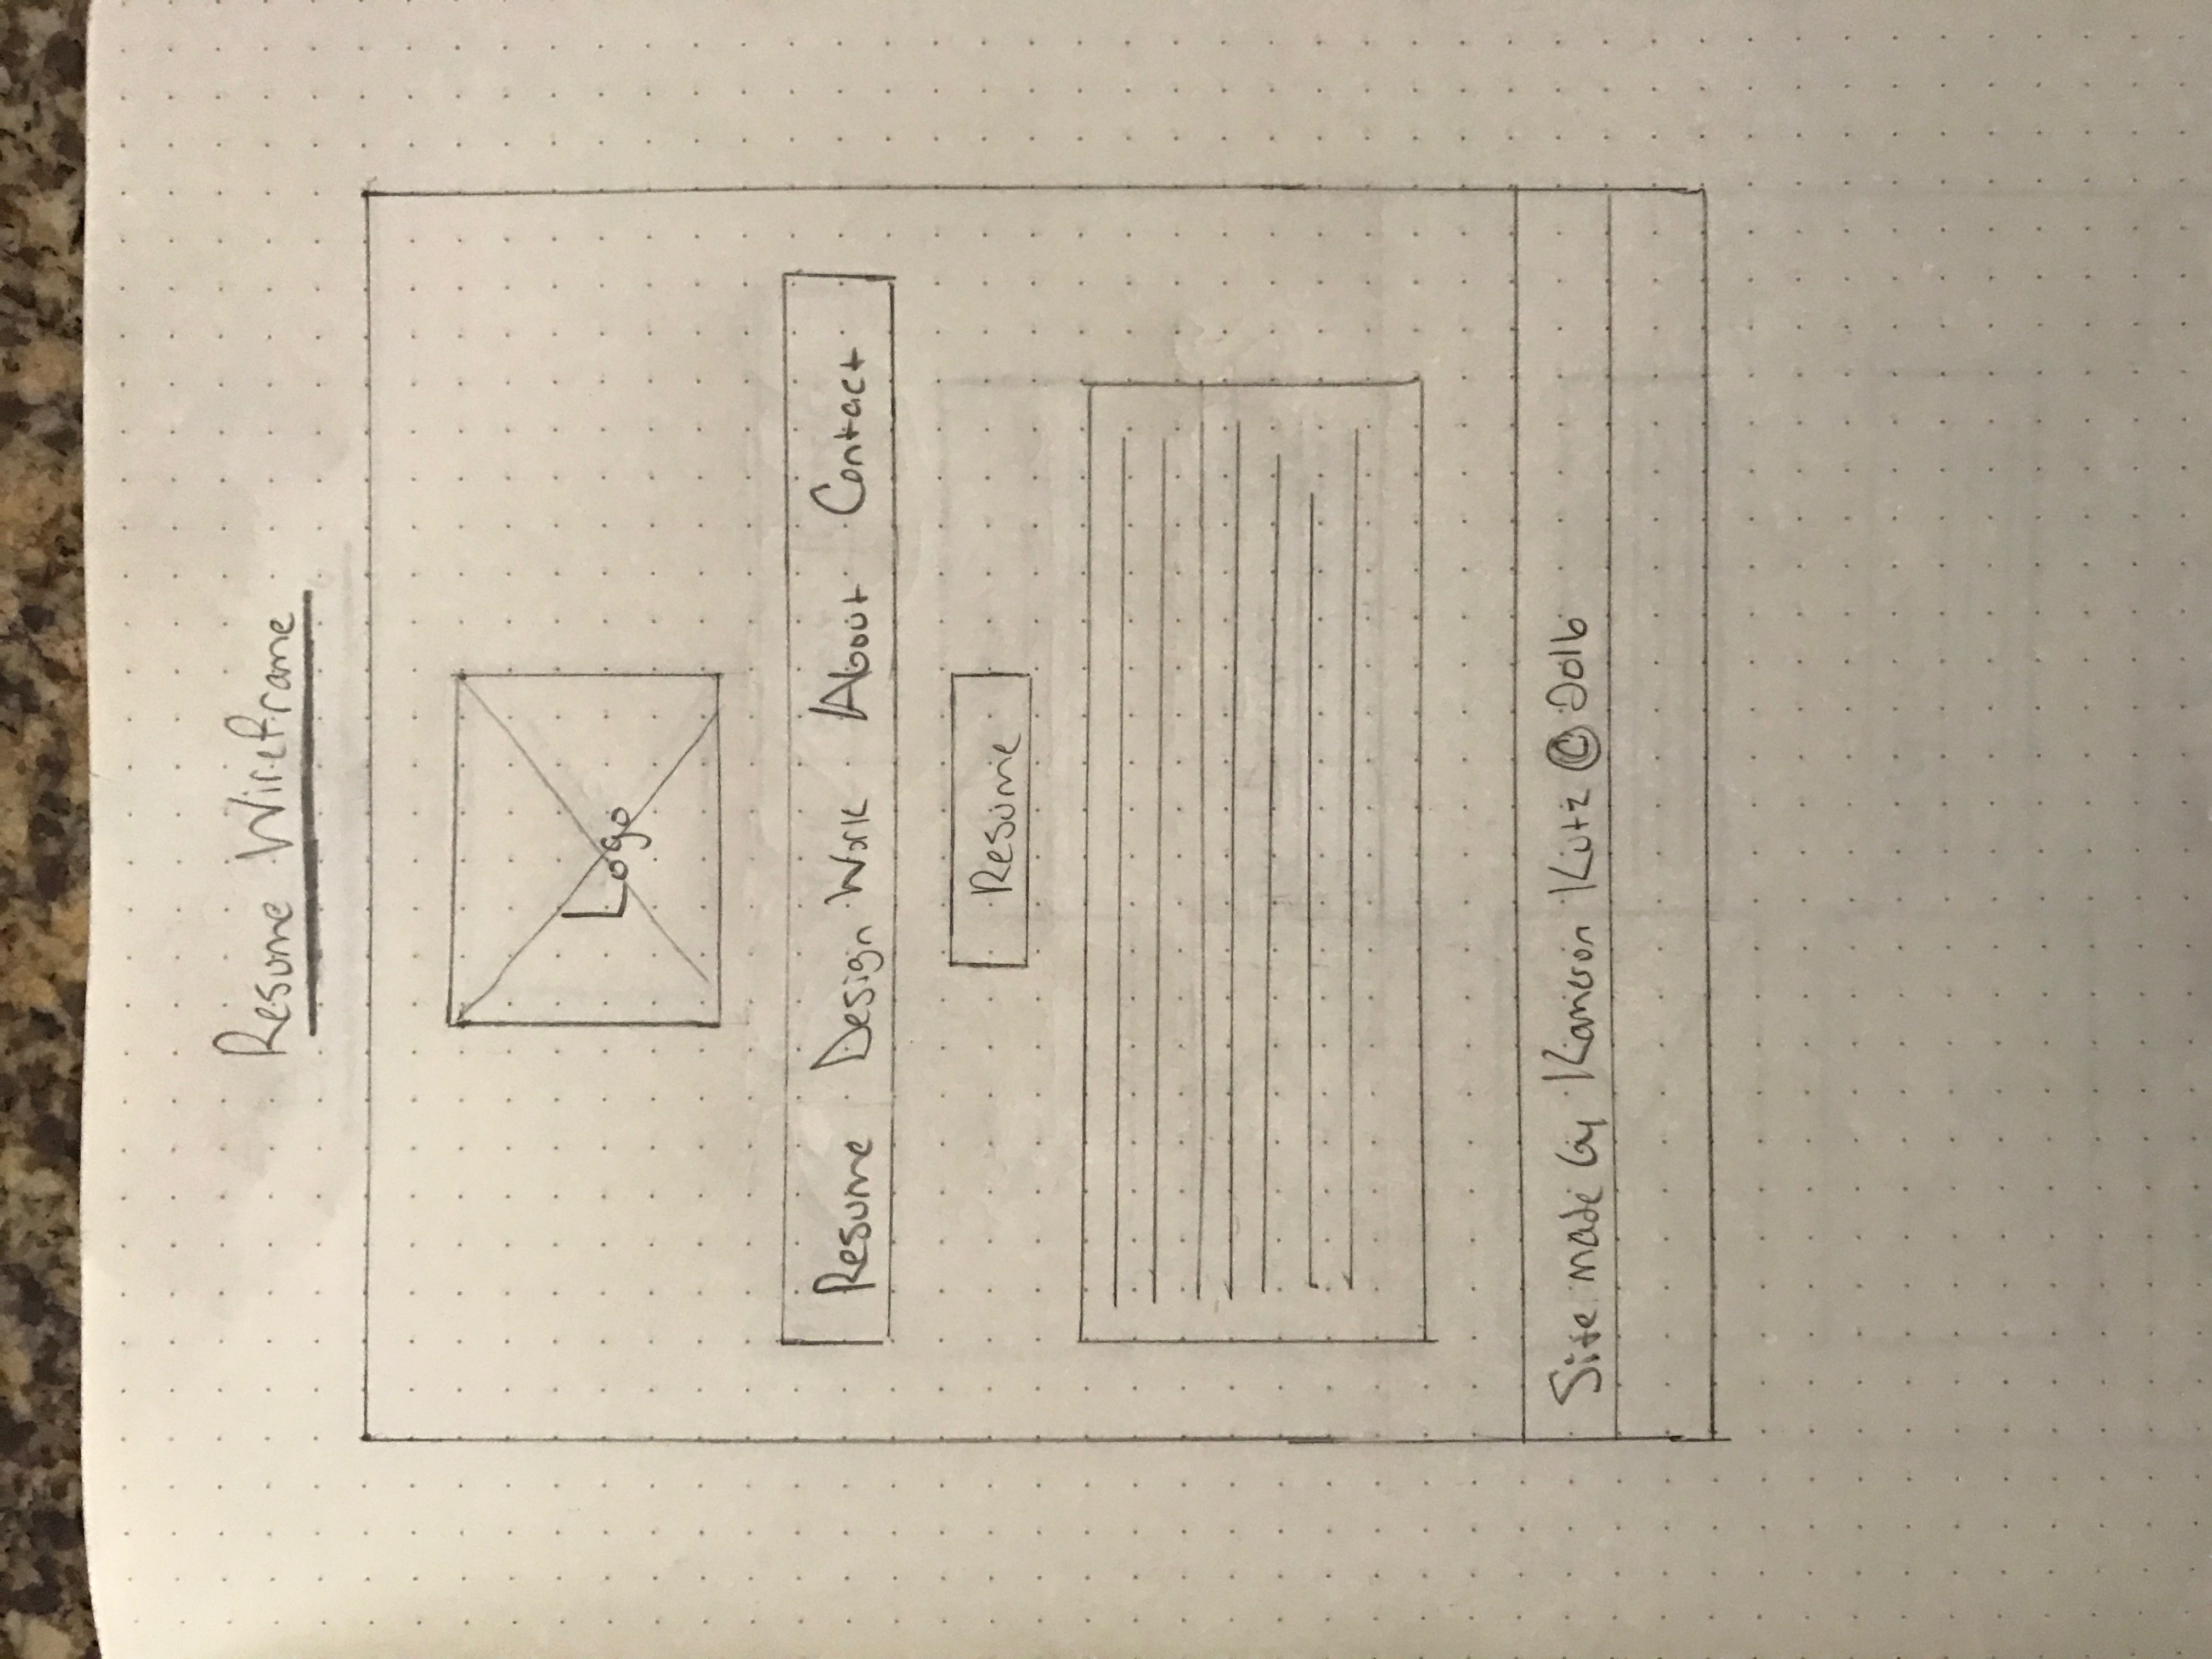 Resume Wireframe
Logo
Resume Design Work About Contact
Resume
Site made by Kameron Kutz © 2016